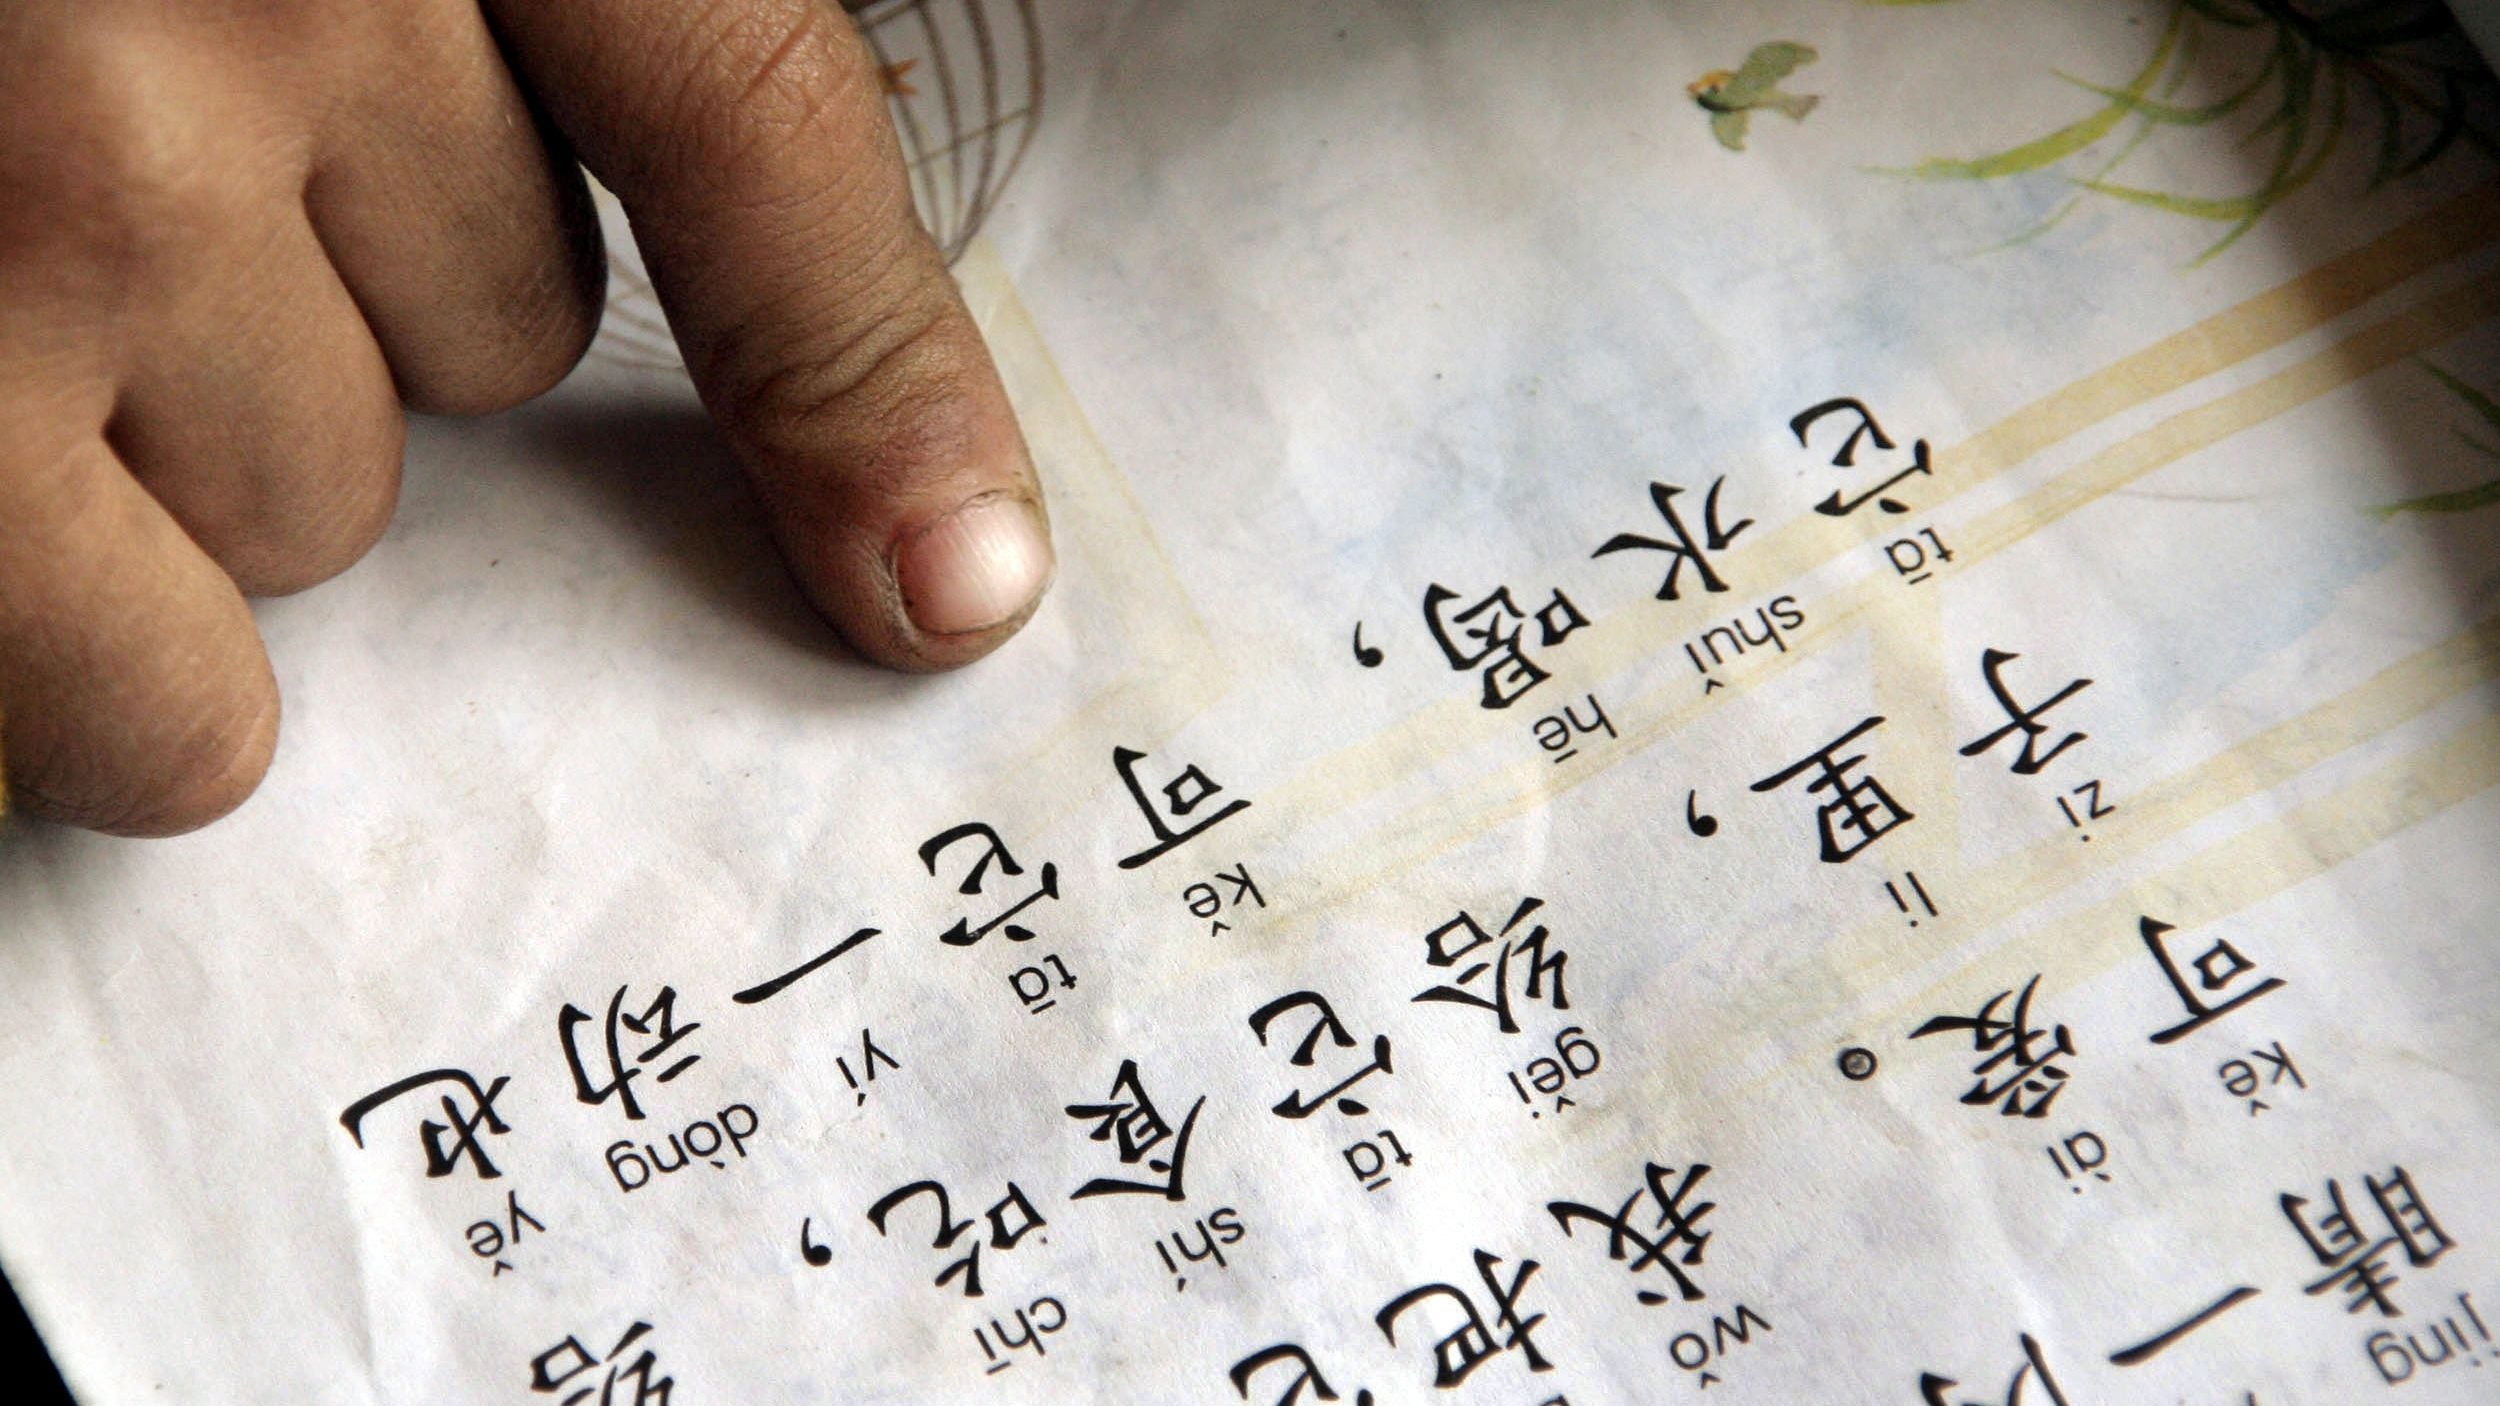 jing
睛一
kě ài wǒ
可爱。我把它
zi li gěi tā shí chī
子里，给它食吃，给
tā shuǐ hē kě tā yí dòng yě
它水喝，可它一动也